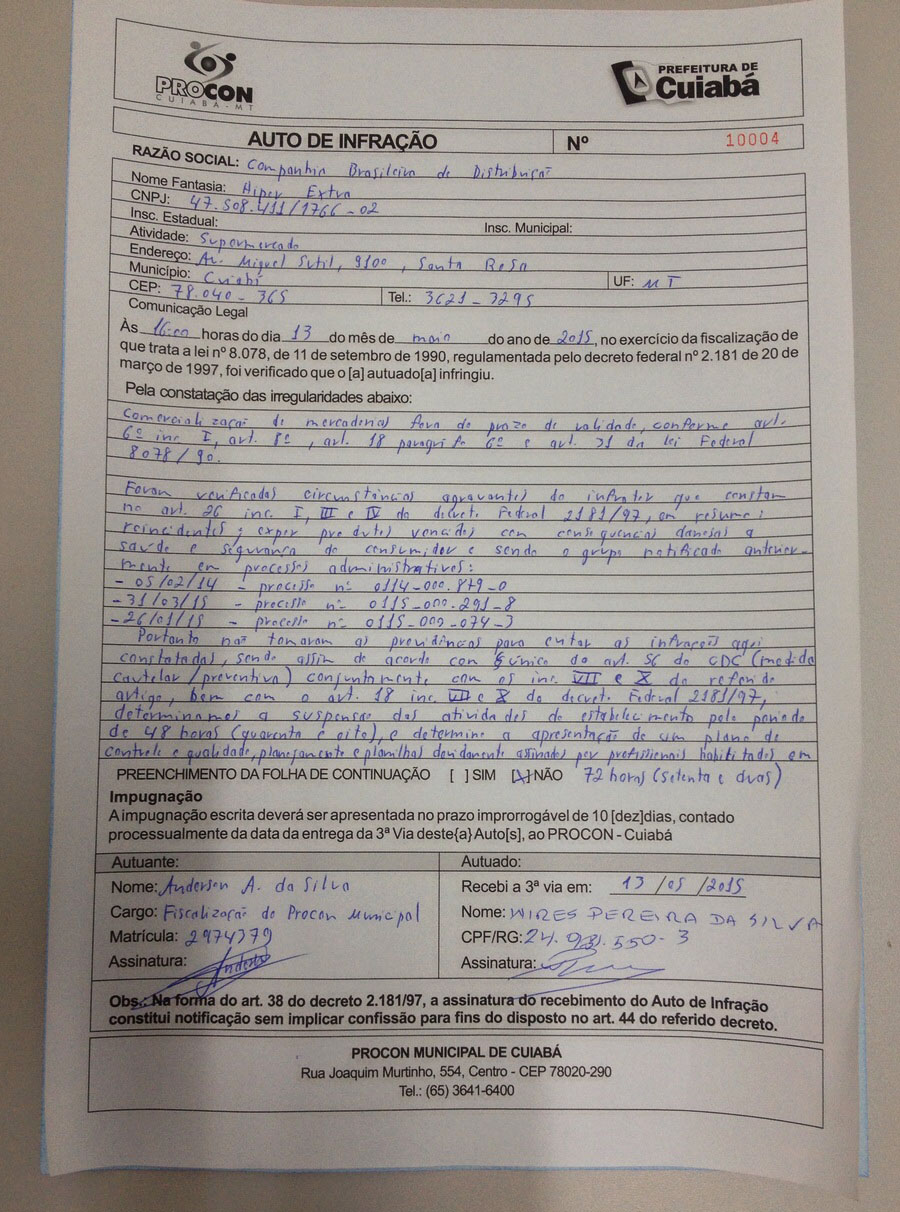 PROCON
CUIABÁ-MT
PREFEITURA DE
Cuiabá
AUTO DE INFRAÇÃO Nº 10004
RAZÃO SOCIAL: Companhia Brasileira de Distribuição
Nome Fantasia: Hiper Extra
CNPJ: 47.508.411/1766-02
Insc. Estadual: Insc. Municipal:
Atividade: Supermercado
Endereço: Av. Miguel Sutil, 9100, Santa Rosa
Município: Cuiabá UF: MT
CEP: 78.040-365 Tel.: 3621-3295
Comunicação Legal
Às 16:00 horas do dia 13 do mês de maio do ano de 2015, no exercício da fiscalização de
que trata a lei nº 8.078, de 11 de setembro de 1990, regulamentada pelo decreto federal nº 2.181 de 20 de
março de 1997, foi verificado que o [a] autuado[a] infringiu.
Pela constatação das irregularidades abaixo:
Comercialização de mercadorias fora do prazo de validade, conforme art.
6º inc I, art. 8º, art. 18 paragrifo 6º e art. 31 da lei Federal
8078/90.
Foram verificadas circunstâncias agravantes do infrator que constam
no art. 26 inc. I, III e IV do decreto Federal 2181/97, em resumo:
reincidentes; expor produtos vencidos com consequencias danosas a
saude e segurança do consumidor e sendo o grupo notificado anterior-
mente em processos administrativos:
- 05/02/14 - processo nº 0114-000.879-0
- 31/03/15 - processo nº 0115-000.291-8
- 26/01/15 - processo nº 0115-000-074-3
Portanto não tomaram as providências para evitar as infrações aqui
constatadas, sendo assim de acordo com § único do art. 56 do CDC (medida
cautelar/preventiva) conjuntamente com os inc. VII e X do referido
artigo, bem com o art. 18 inc. VII e X do decreto Federal 2181/97,
determinamos a suspensão das atividades do estabelecimento pelo periodo
de 48 horas (quarenta e oito), e determino a apresentação de um plano de
controle e qualidade, planejamento e planilhas devidamente assinados por profissionais habilitados em
PREENCHIMENTO DA FOLHA DE CONTINUAÇÃO [ ] SIM [X] NÃO 72 horas (setenta e duas)
Impugnação
A impugnação escrita deverá ser apresentada no prazo improrrogável de 10 [dez]dias, contado
processualmente da data da entrega da 3ª Via deste{a} Auto[s], ao PROCON - Cuiabá
Autuante: Autuado:
Nome: Anderson A. da Silva Recebi a 3ª via em: 13/05/2015
Cargo: Fiscalização do Procon Municipal Nome: WIRES PEREIRA DA SILVA
Matrícula: 2974379 CPF/RG: 24.931.550-3
Assinatura: Anderson Assinatura:
Obs.: Na forma do art. 38 do decreto 2.181/97, a assinatura do recebimento do Auto de Infração
constitui notificação sem implicar confissão para fins do disposto no art. 44 do referido decreto.
PROCON MUNICIPAL DE CUIABÁ
Rua Joaquim Murtinho, 554, Centro - CEP 78020-290
Tel.: (65) 3641-6400